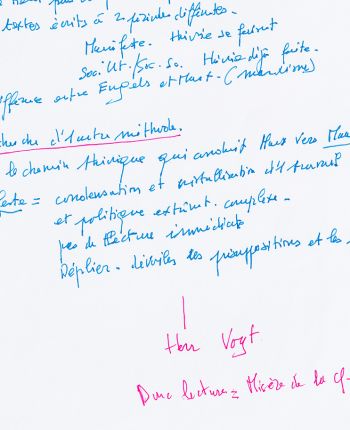 textes écrits à 2 périodes différentes.
Manifeste. théorie se faisant
Soc. Ut./Soc. Sc. théorie déjà faite.
entre Engels et Marx. (marxisme)
d'1 autre méthode.
le chemin théorique qui conduit Marx vers
= condensation et cristallisation d'1 travail
et politique extrêmt. complexe.
pas de lecture immédiate
Déplier. dévoiler les présuppositions et les
Herr Vogt
Donc lecture = Misère de la